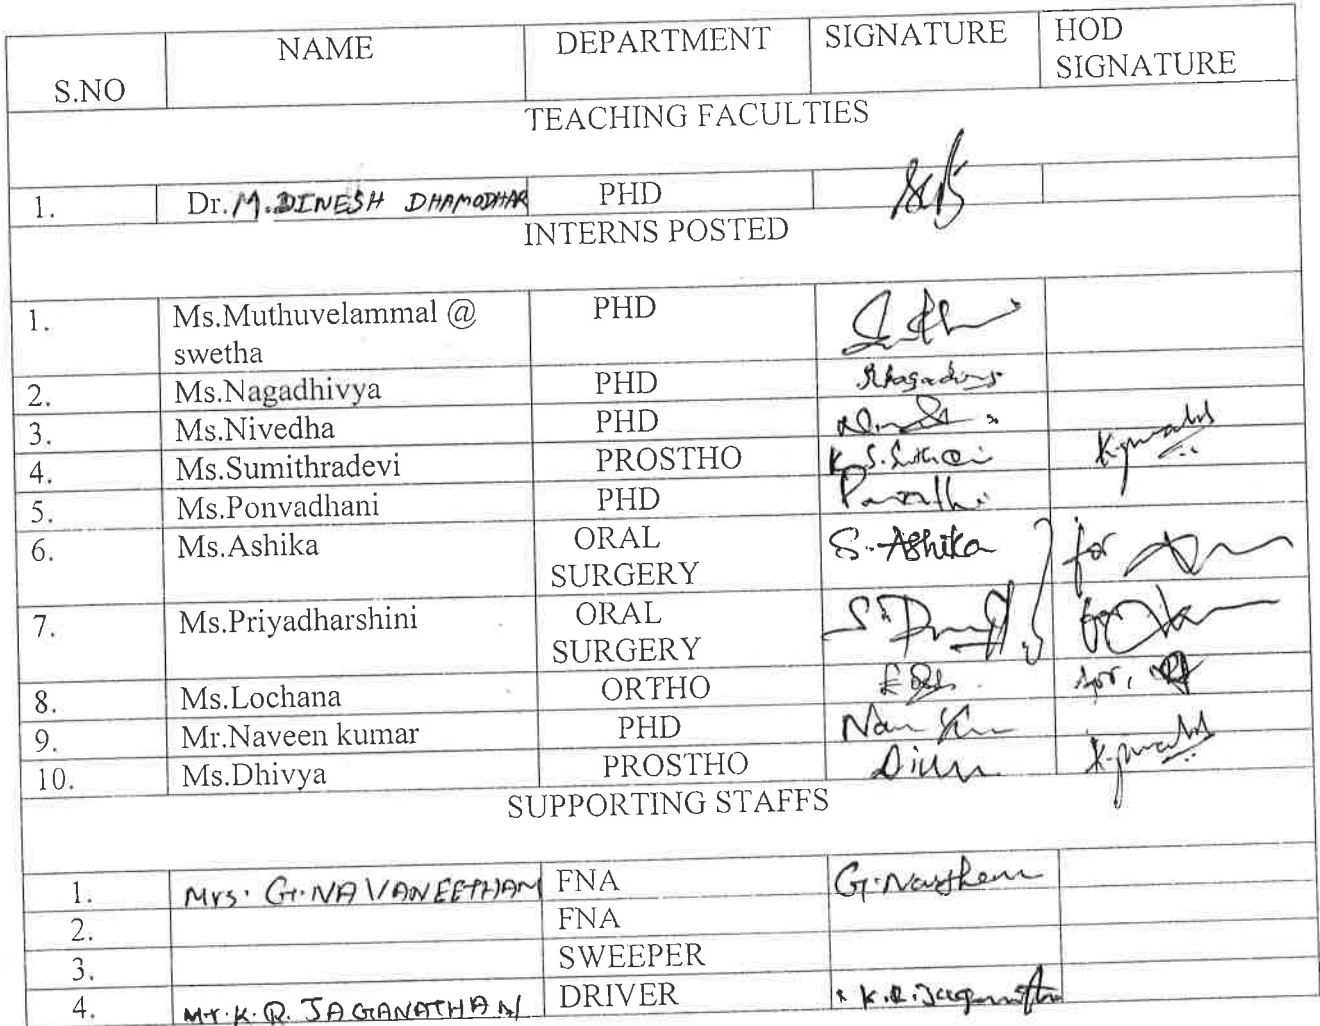 S.NO NAME DEPARTMENT SIGNATURE HOD SIGNATURE
TEACHING FACULTIES
1. Dr. M. DINESH DHAMODHAR PHD
INTERNS POSTED
1. Ms.Muthuvelammal @ swetha PHD
2. Ms.Nagadhivya PHD
3. Ms.Nivedha PHD
4. Ms.Sumithradevi PROSTHO
5. Ms.Ponvadhani PHD
6. Ms.Ashika ORAL SURGERY S. Ashika for
7. Ms.Priyadharshini ORAL SURGERY for
8. Ms.Lochana ORTHO for
9. Mr.Naveen kumar PHD
10. Ms.Dhivya PROSTHO
SUPPORTING STAFFS
1. Mrs. G. NAVANEETHAM FNA
2. FNA
3. SWEEPER
4. Mr. K. R. JAGANATHAN DRIVER